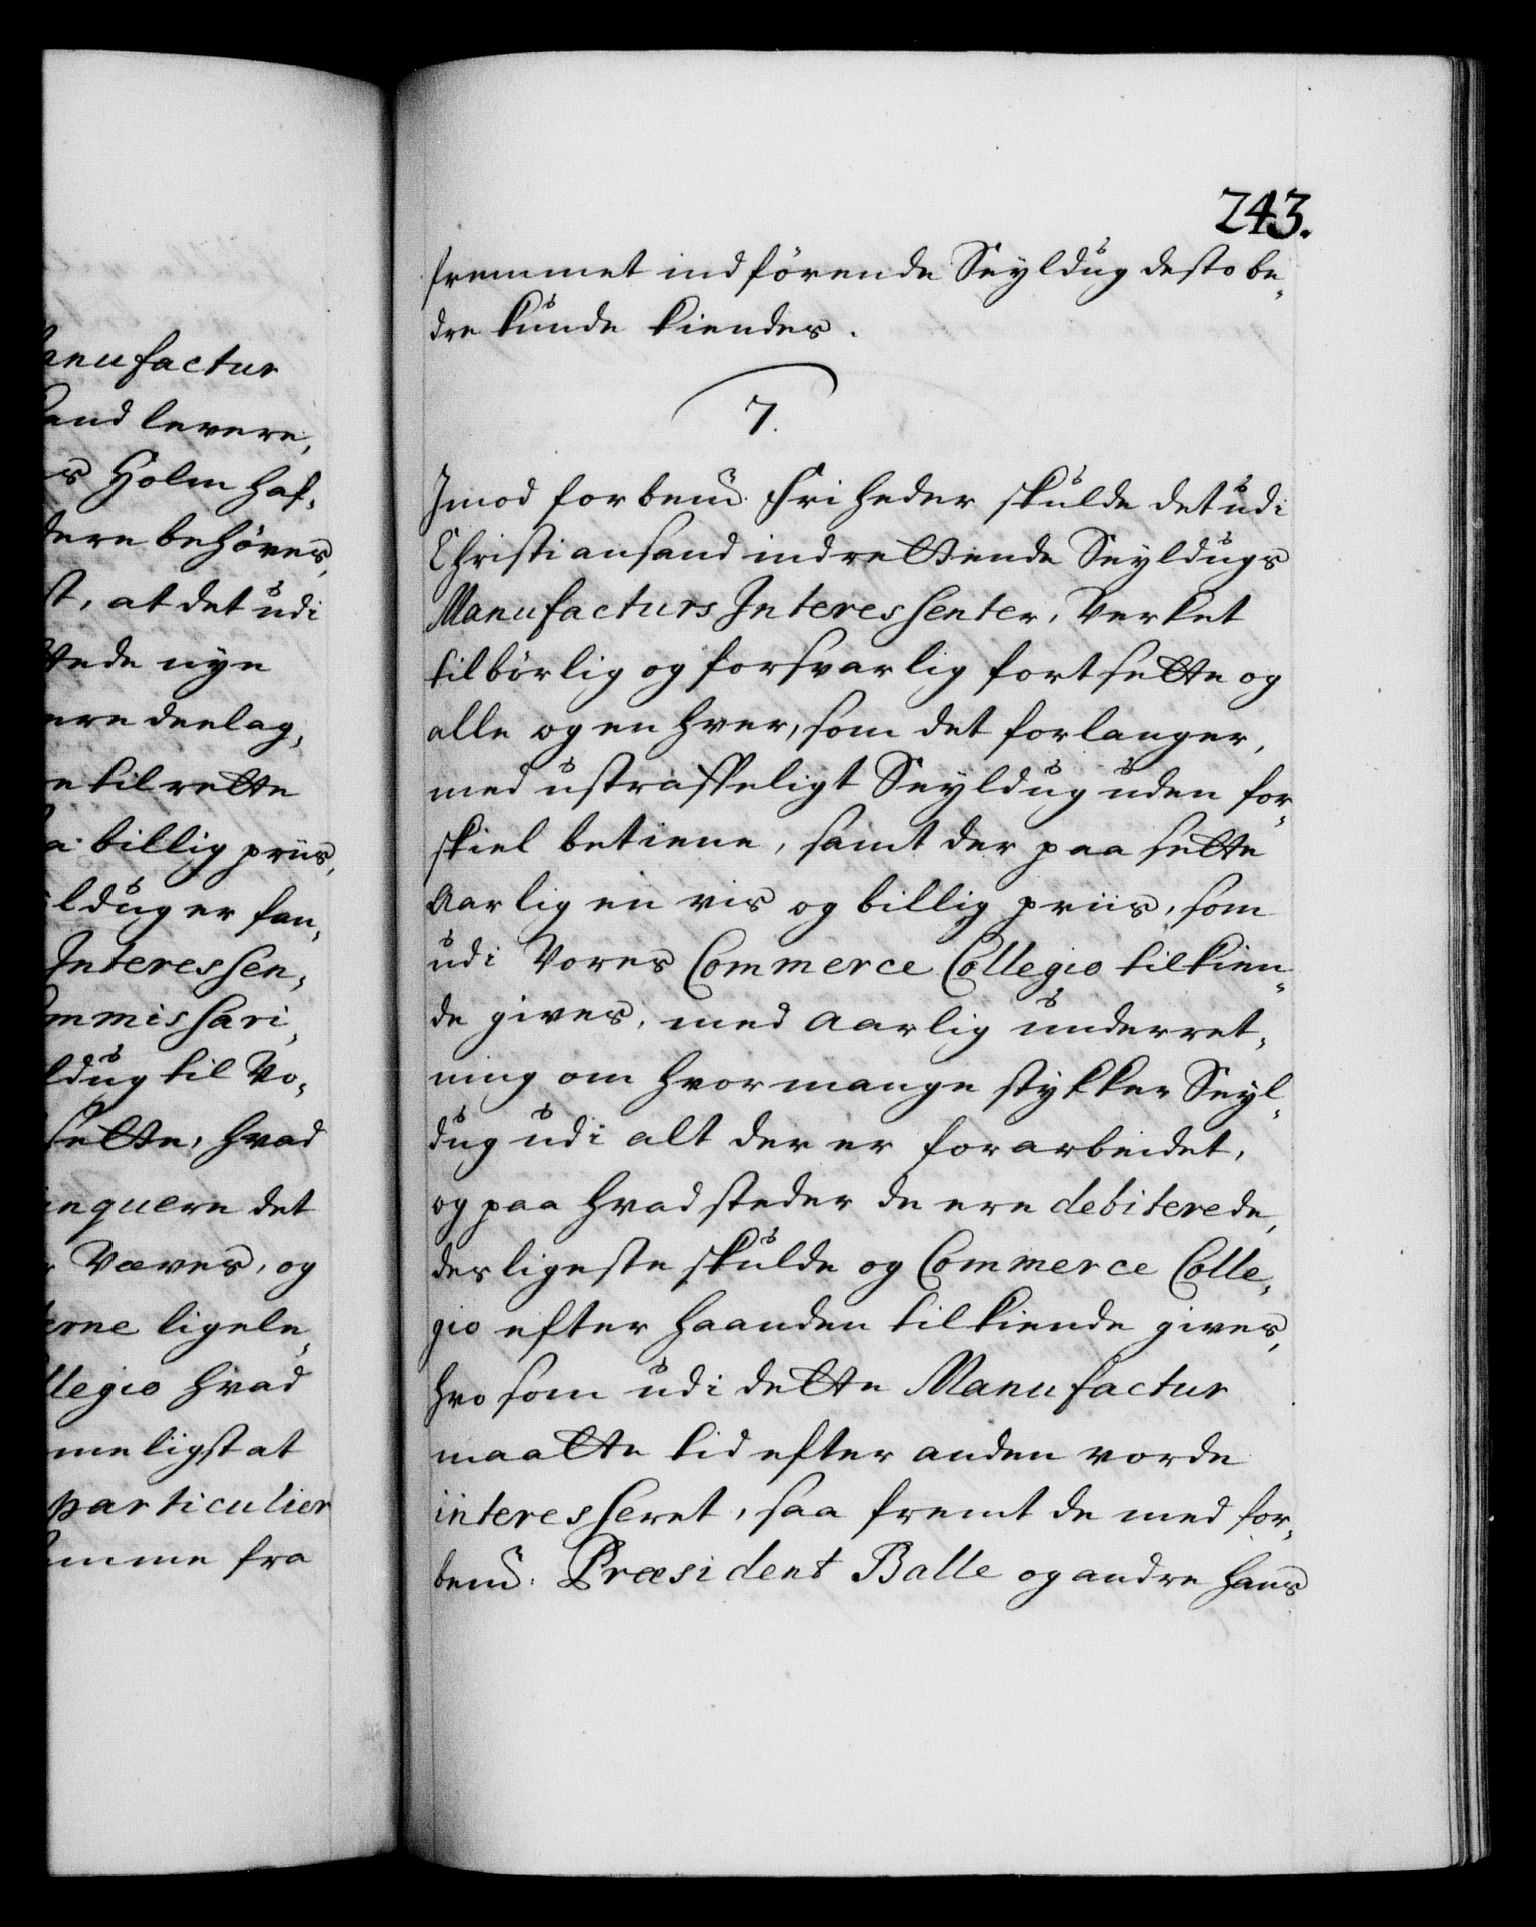 anufactur
and levere,
s Holm haf,
dere behöves,
st, at det udi
tede nye
ere deelag,
e til rette
a billig priis,
ldug er fan,
Interessen,
ommissari,
ldug til Vo,
sette, hvad
inquere det
Væves, og
erne ligele,
llegio hvad
meligst at
particulier
omme fra
243.
fremmet indförende Seyldug desto be,
dre kunde kiendes.
7.
Imod forbem.te Friheder skulde det udi
Christiansand indrettende Seyldugs
Manufacturs Interessenter, Verket
tilbörlig og forsvarlig fortsette og
alle og en hver, som det forlanger,
med ustraffeligt Seyldug uden for,
skiel betiene, samt der paa sette
aarlig en vis og billig priis, som
udi Vores Commerce Collegio tilkien,
de gives, med aarlig underret,
ning om hvor mange stykker Seyl,
dug udi alt der er forarbeidet,
og paa hvad steder de ere debiterede,
desligeste skulde og Commerce Colle,
gio efter haanden tilkiende gives,
hvo som udi dette Manufactur
maatte tid efter anden vorde
interesseret, saa fremt de med for,
bem.te Præsident Balle og andre hans